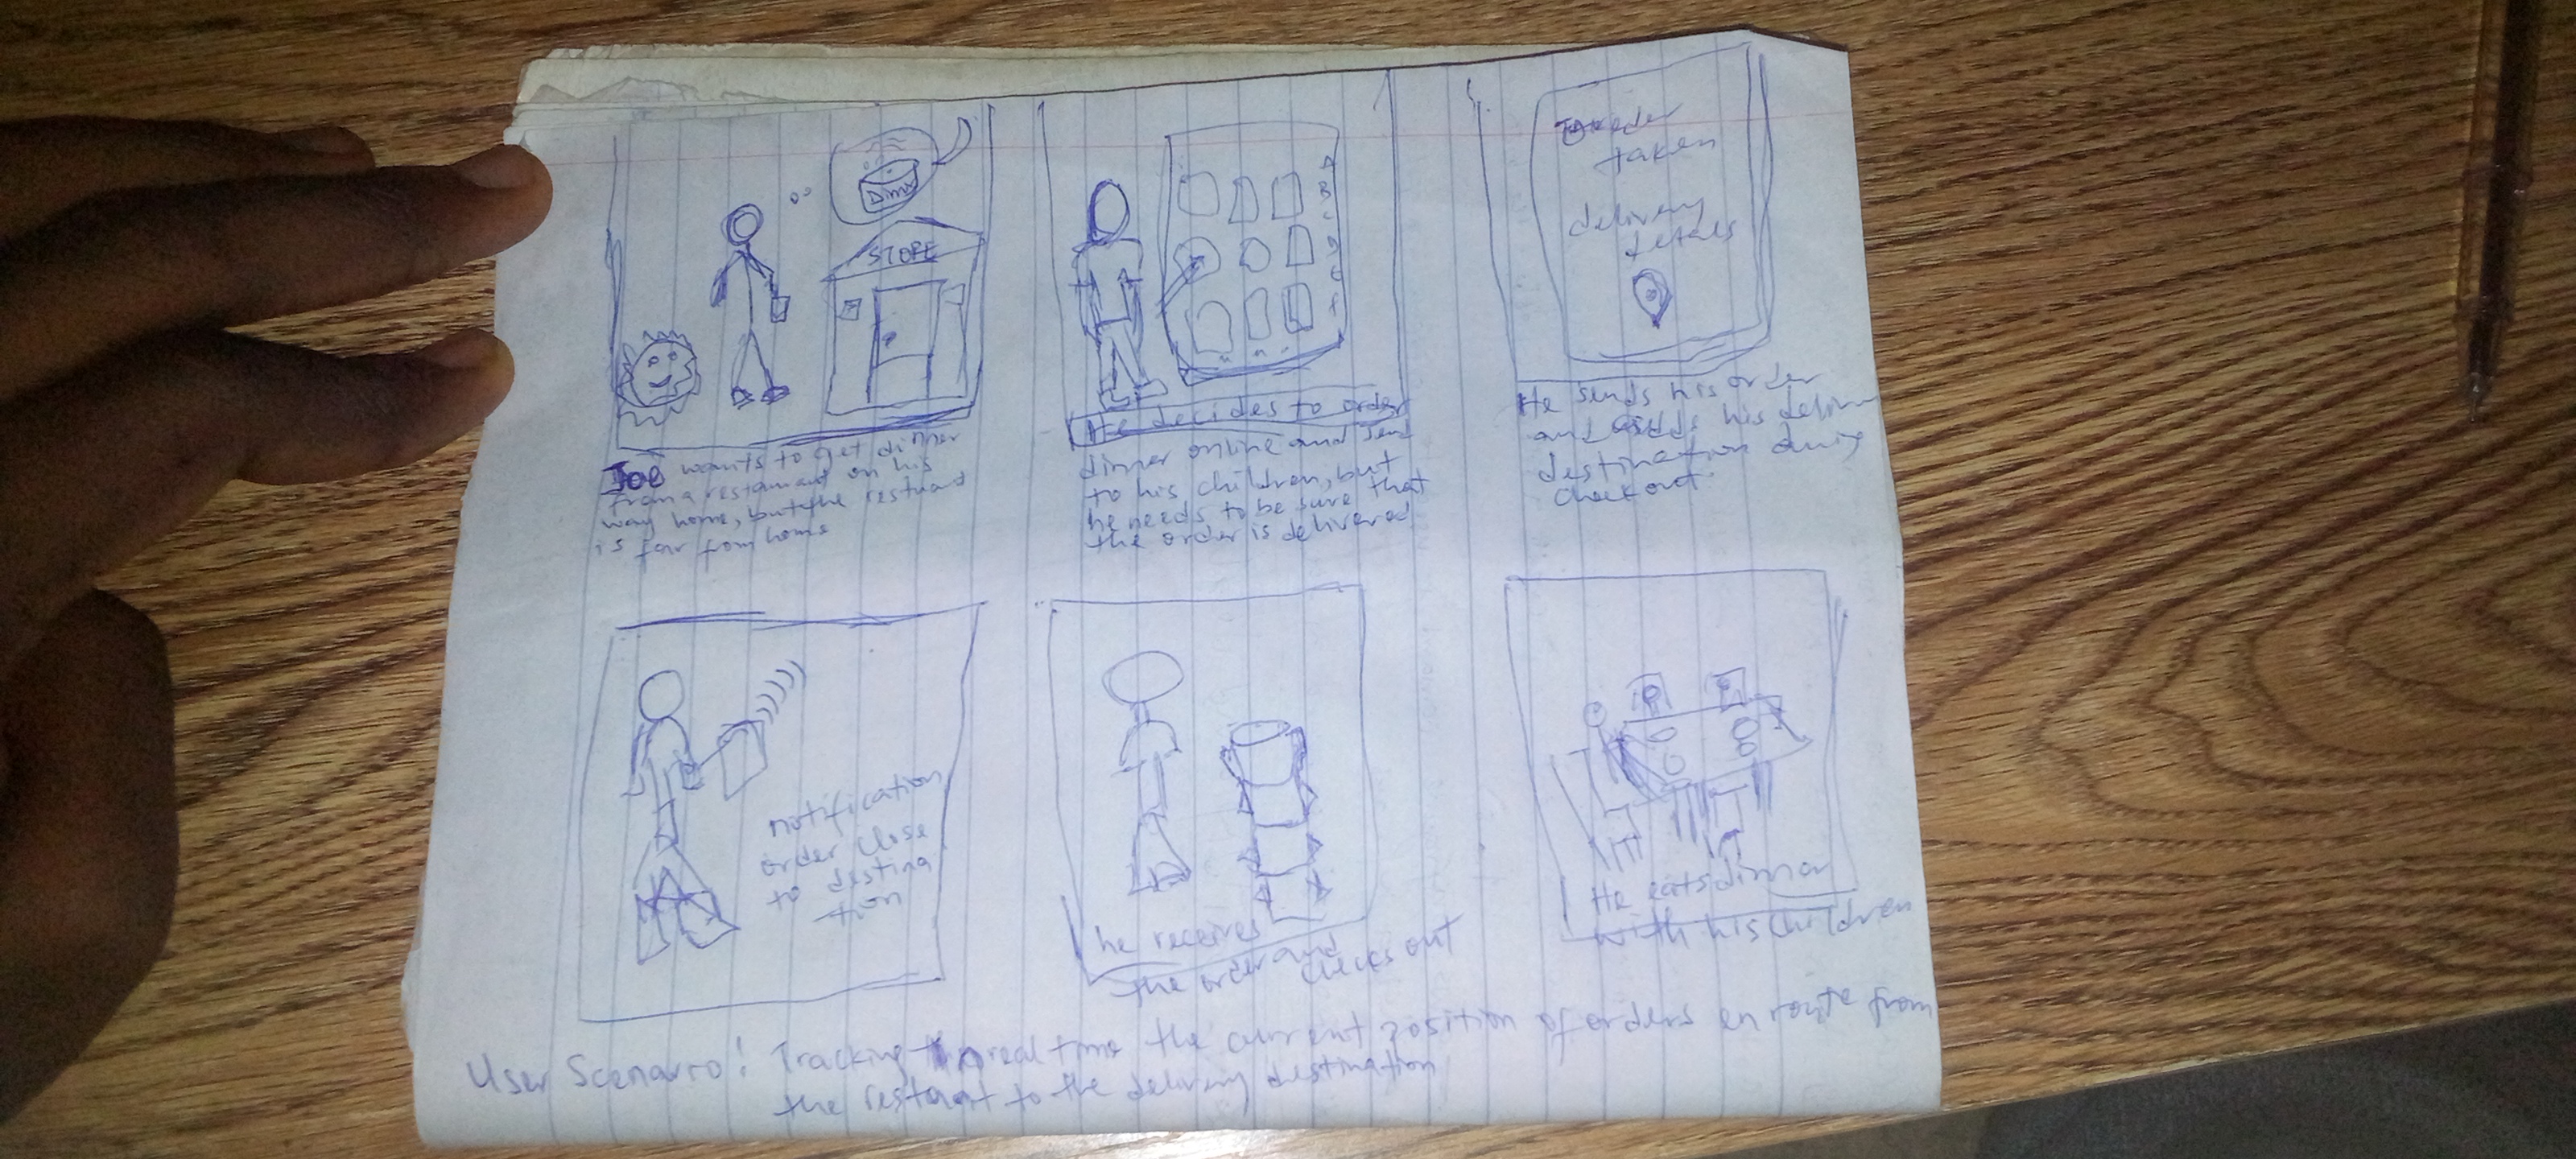 Dinner
STORE
Joe wants to get dinner
from a restaurant on his
way home, but the resturant
is far from home
A
B
C
D
E
F
He decides to order
dinner online and send
to his children, but
he needs to be sure that
the order is delivered
order
taken
delivery
details
He sends his order
and adds his
destination during
checkout
notification
order close
to destina
tion
he receives
the order and
checks out
He eats dinner
with his children
User Scenario! Tracking in real time the current position of orders en route from
the restorant to the delivery destination